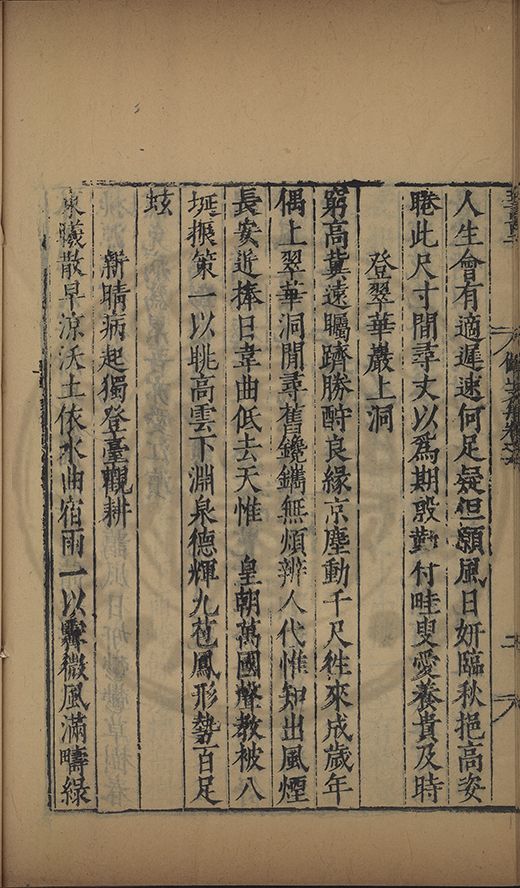 人生會有適遲速何足疑但願風日妍臨秋挹高姿
睠此尺寸間尋丈以爲期殷勤付畦叟愛養貴及時
登翠華巖上洞
窮高冀遠矚躋勝酧良緣京塵動千尺徃來成歲年
偶上翠華洞閒尋舊鑱鐫無煩辨人代惟知出風煙
長安近捧日韋曲低去天惟 皇朝萬國聲教被八
埏振策一以眺高雲下淵泉德輝九苞鳳形勢百足
蚿
新晴病起獨登臺觀耕
曦散早涼沃土依水曲宿雨一以霽微風滿疇綠